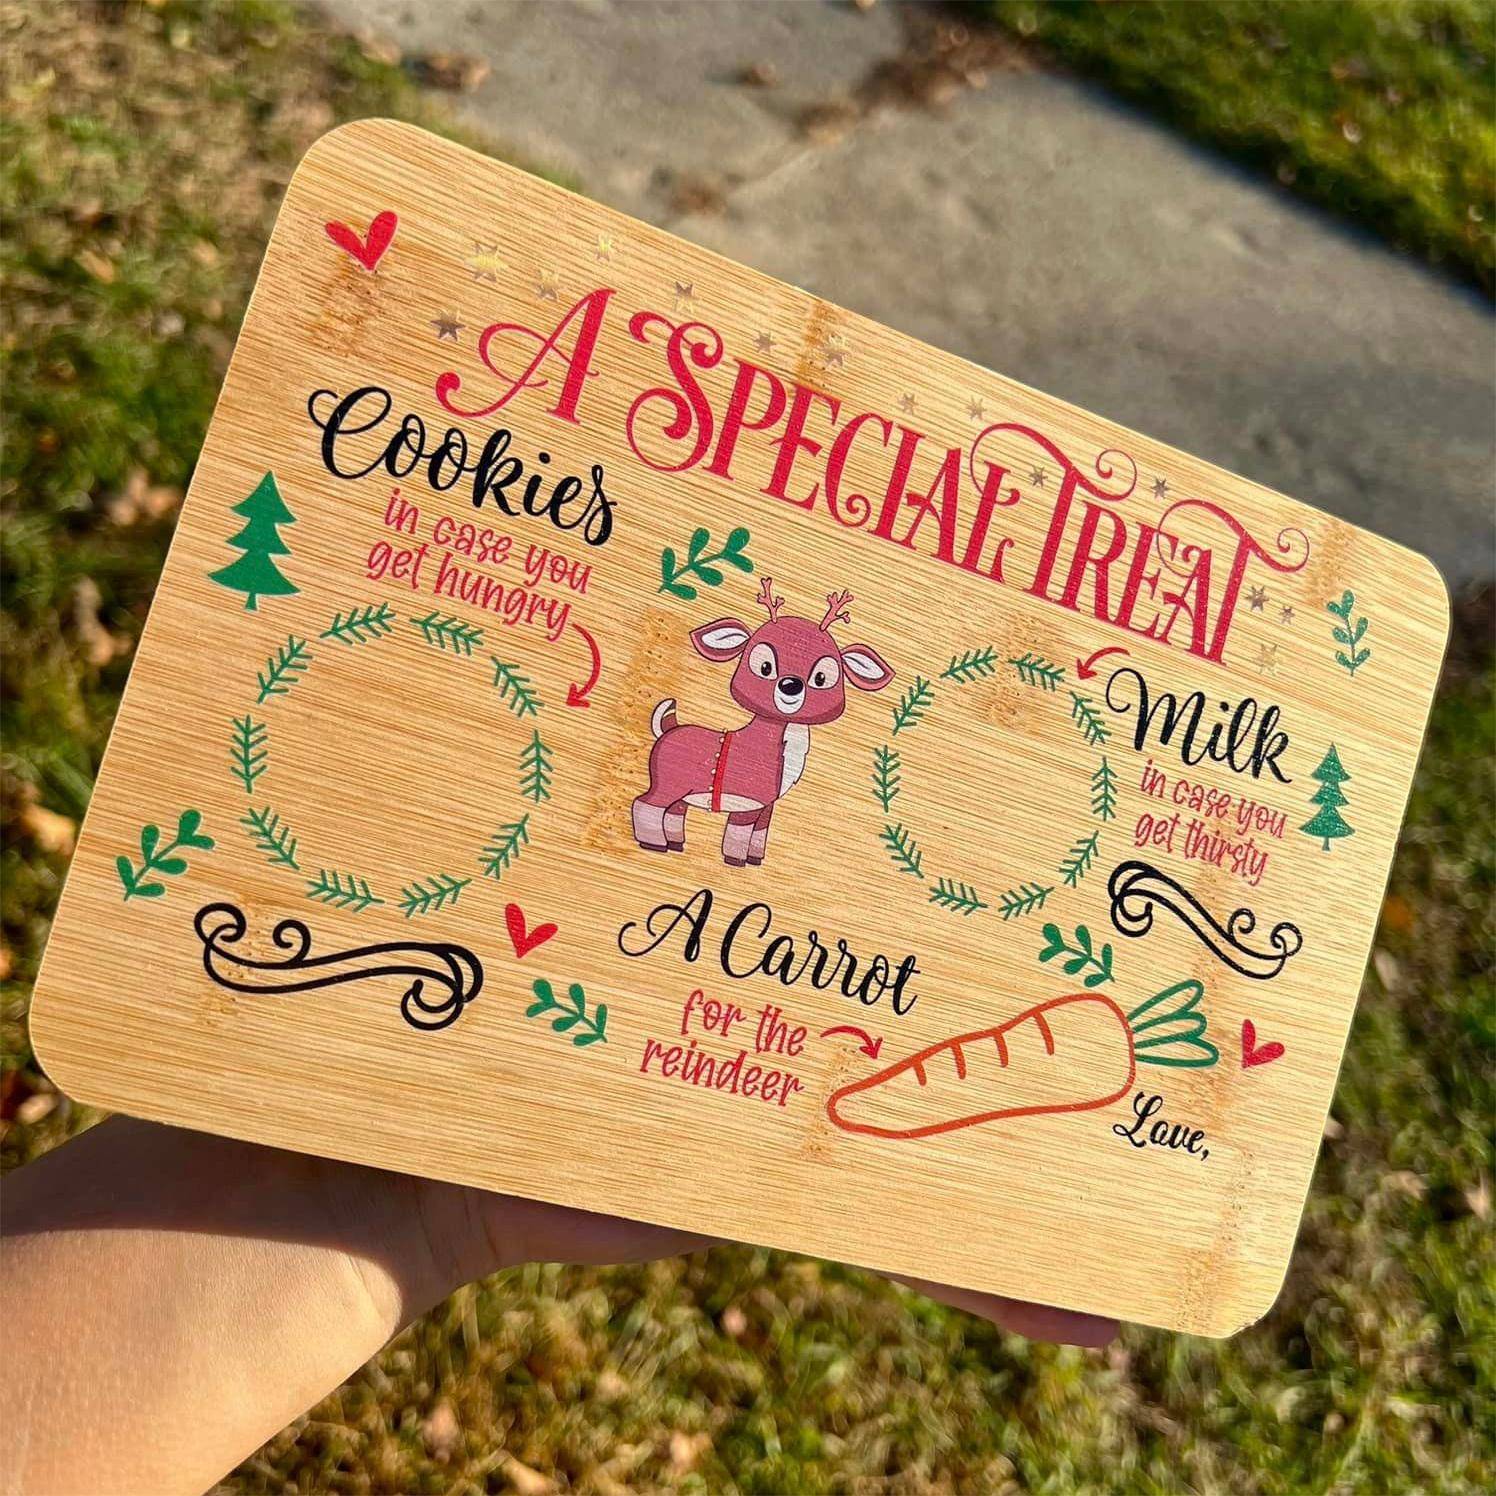 A SPECIAL TREAT
Cookies
in case you
get hungry
Milk
in case you
get thirsty
A Carrot
for the
reindeer
Love,